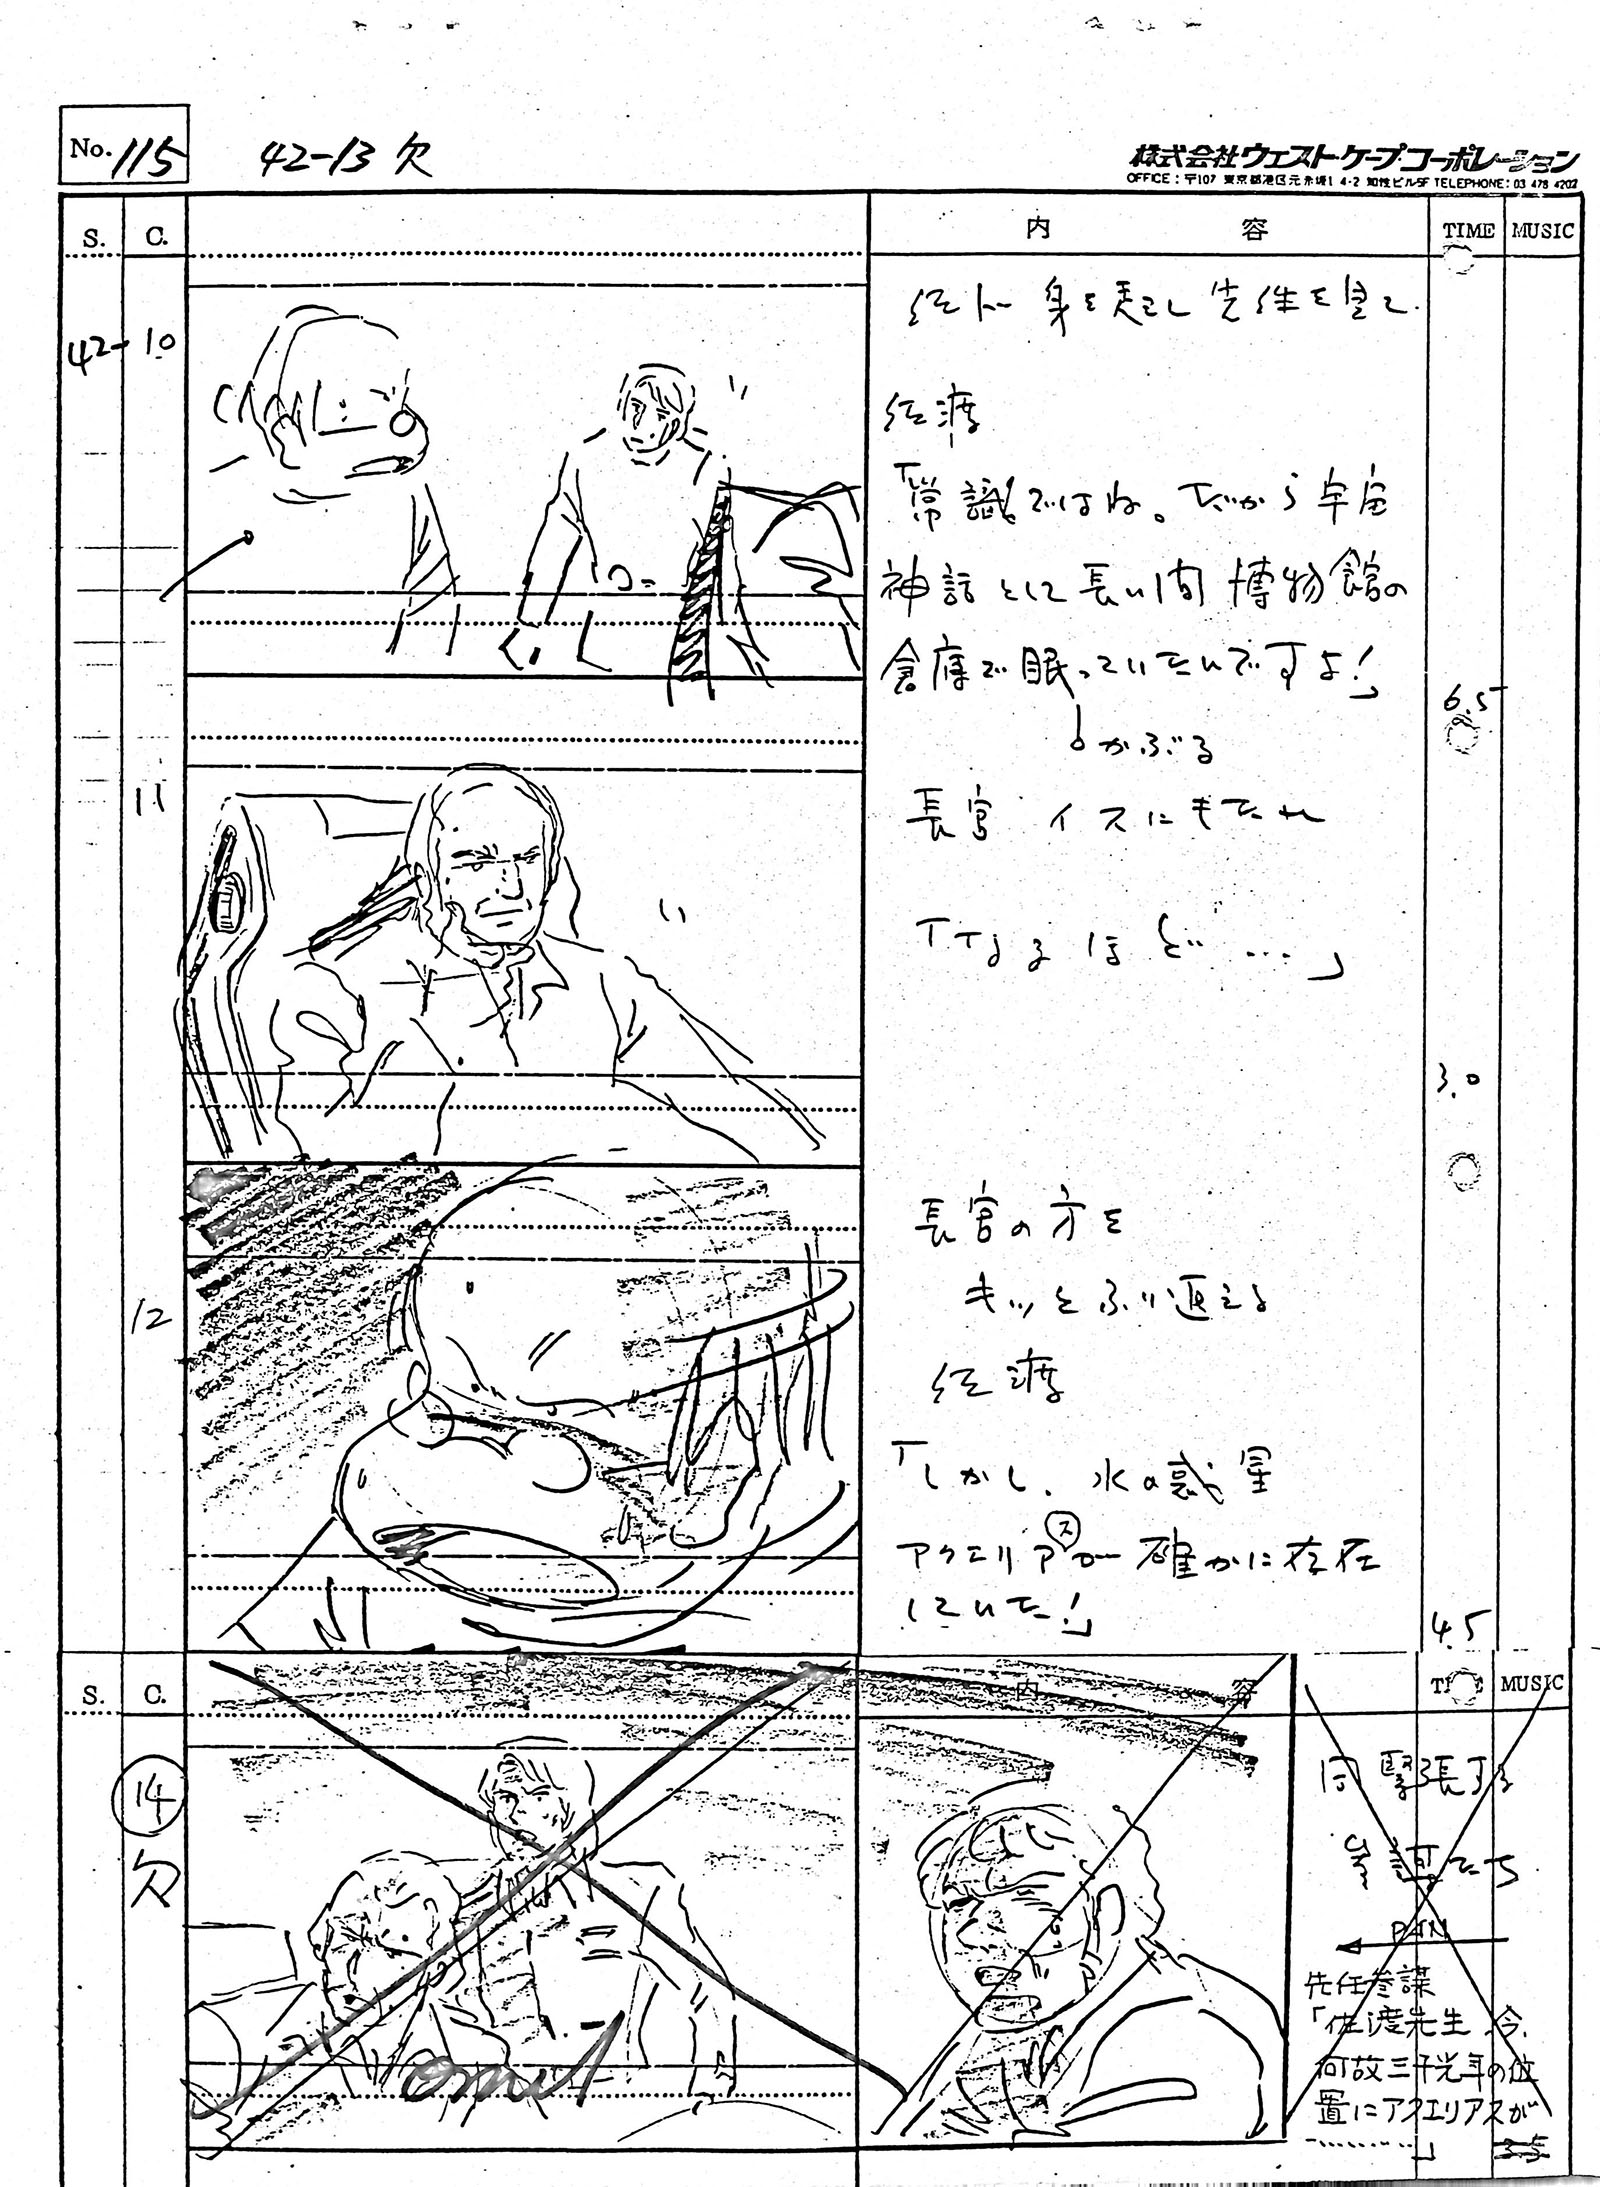 No. 115
42-13 欠
株式会社ウェスト・ケープ・コーポレーション
OFFICE：〒107 東京都港区元赤坂1 4-2 知性ビル5F TELEPHONE：03 478 4202
S. C. 内 容 TIME MUSIC
42-10
身を
佐渡
「常識ではね。だから宇宙
神話として長い間博物館の
倉庫で眠っていたんですよ!」
6.5
かぶる
11
長官 イスにもたれ
「なるほど……」
3.0
12
長官の方を
キッとふり返える
佐渡
「しかし、水の惑星
アクエリアスは 確かに存在
していた!」
4.5
S. C. 内 容 TIME MUSIC
14
欠
同 緊張する
たち
PAN
先任参謀
「佐渡先生、今、
何故三千光年の位
置にアクエリアスが
…………」
3.5
omit